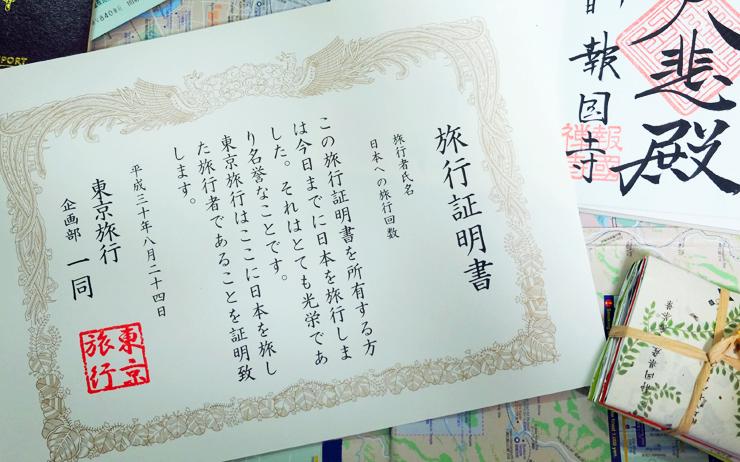 旅行証明書
旅行者氏名
日本への旅行回数
この旅行証明書を所有する方
は今日までに日本を旅行しま
した。それはとても光栄であ
り名誉なことです。
東京旅行はここに日本を旅し
た旅行者であることを証明致
します。
平成三十年八月二十四日
東京旅行
企画部 一同
東京
旅行
大悲殿
報国寺
PORT
840